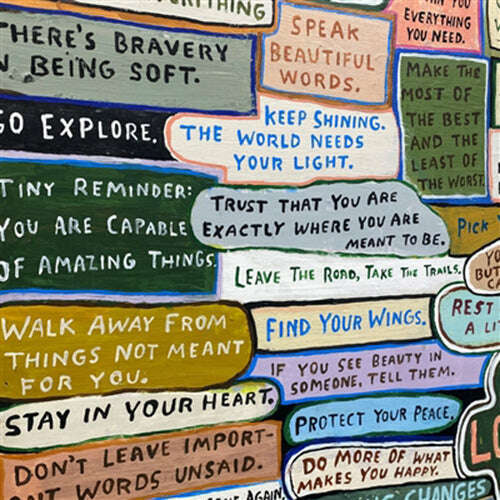 EVERYTHING
THERE'S BRAVERY
IN BEING SOFT.
SPEAK
BEAUTIFUL
WORDS.
YOU
EVERYTHING
YOU NEED.
MAKE THE
MOST OF
THE BEST
AND THE
LEAST OF
THE WORST.
GO EXPLORE.
KEEP SHINING.
THE WORLD NEEDS
YOUR LIGHT.
TINY REMINDER:
YOU ARE CAPABLE
OF AMAZING THINGS.
TRUST THAT YOU ARE
EXACTLY WHERE YOU ARE
MEANT TO BE.
PICK
LEAVE THE ROAD, TAKE THE TRAILS.
BUT
WALK AWAY FROM
THINGS NOT MEANT
FOR YOU.
FIND YOUR WINGS.
REST
A LI
IF YOU SEE BEAUTY IN
SOMEONE, TELL THEM.
STAY IN YOUR HEART.
PROTECT YOUR PEACE.
DON'T LEAVE IMPORT-
ANT WORDS UNSAID.
DO MORE OF WHAT
MAKES YOU HAPPY.
LO
CHANGES
AGAIN,